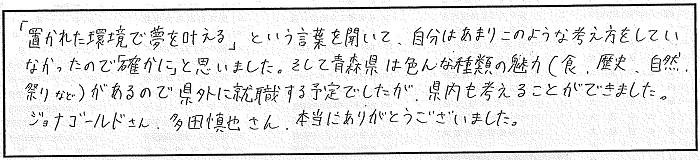 「置かれた環境で夢を叶える」という言葉を聞いて、自分はあまりこのような考え方をしてい
なかったので「確かに」と思いました。そして青森県は色んな種類の魅力(食、歴史、自然、
祭りなど)があるので県外に就職する予定でしたが、県内も考えることができました。
ジョナゴールドさん、多田慎也さん、本当にありがとうございました。